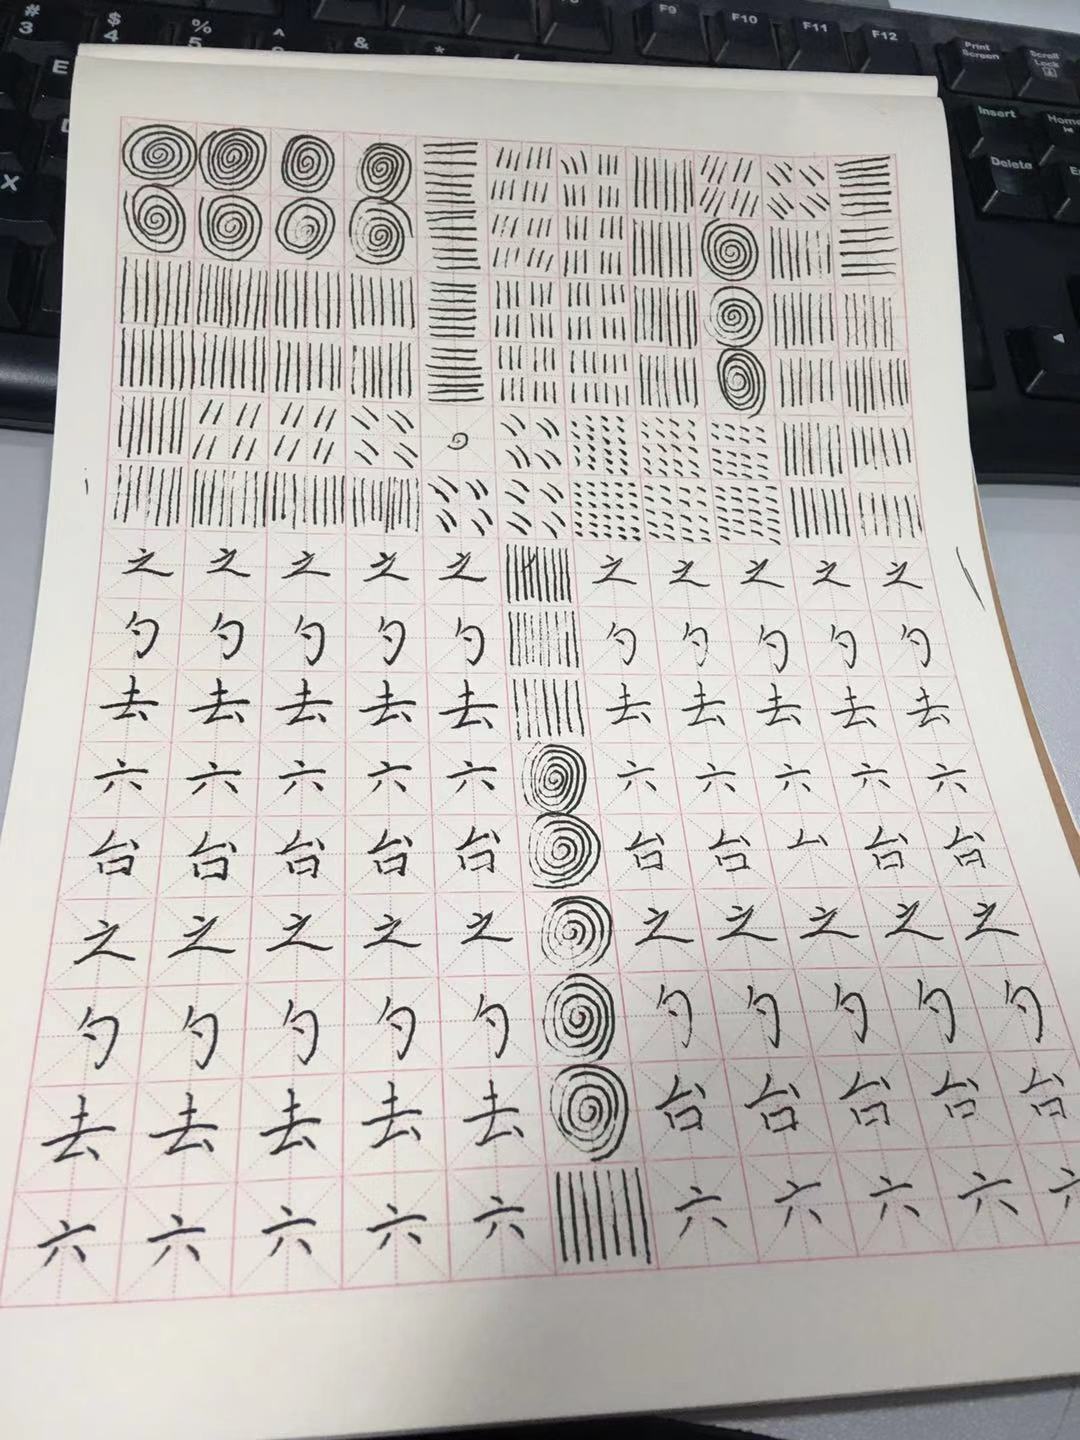 # $ % ^ & * F9 F10 F11 F12
3 4 5 Print Screen Scroll Lock
E Insert Home
X Delete
之 之 之 之 之 之 之 之 之 之
勺 勺 勺 勺 勺 勺 勺 勺 勺 勺
去 去 去 去 去 去 去 去 去 去
六 六 六 六 六 六 六 六 六 六
台 台 台 台 台 台 台 台 台
之 之 之 之 之 之 之 之 之 之
勺 勺 勺 勺 勺 勺 勺 勺 勺 勺
去 去 去 去 去 台 台 台 台 台
六 六 六 六 六 六 六 六 六